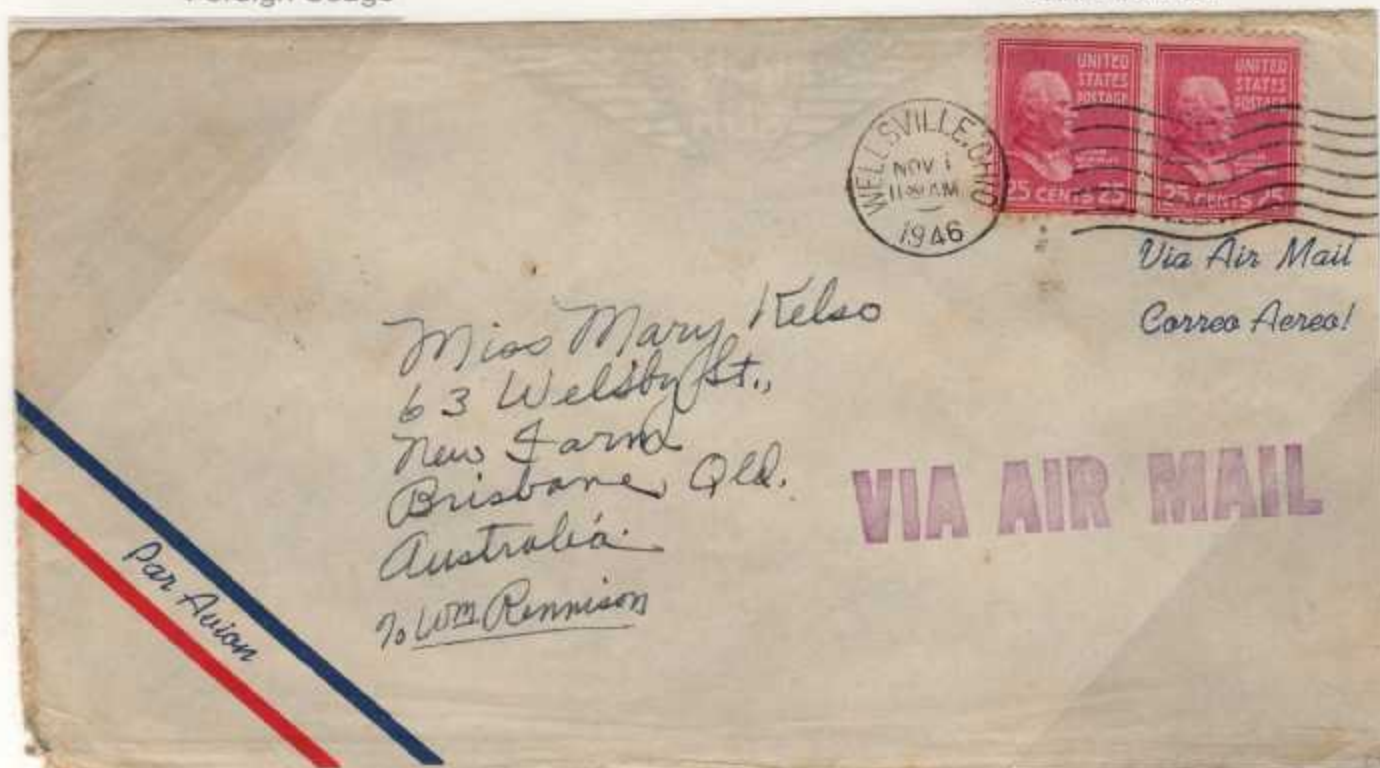 Foreign Usage
UNITED
STATES
POSTAGE
25 CENTS 25
UNITED
STATES
POSTAGE
25 CENTS 25
WELLSVILLE, OHIO
NOV 1
AM
1946
Via Air Mail
Correo Aereo!
Miss Mary Kelso
63 Welsby St.,
New Farm
Brisbane, Qld.
Australia.
VIA AIR MAIL
Par Avion
Wm Rennison